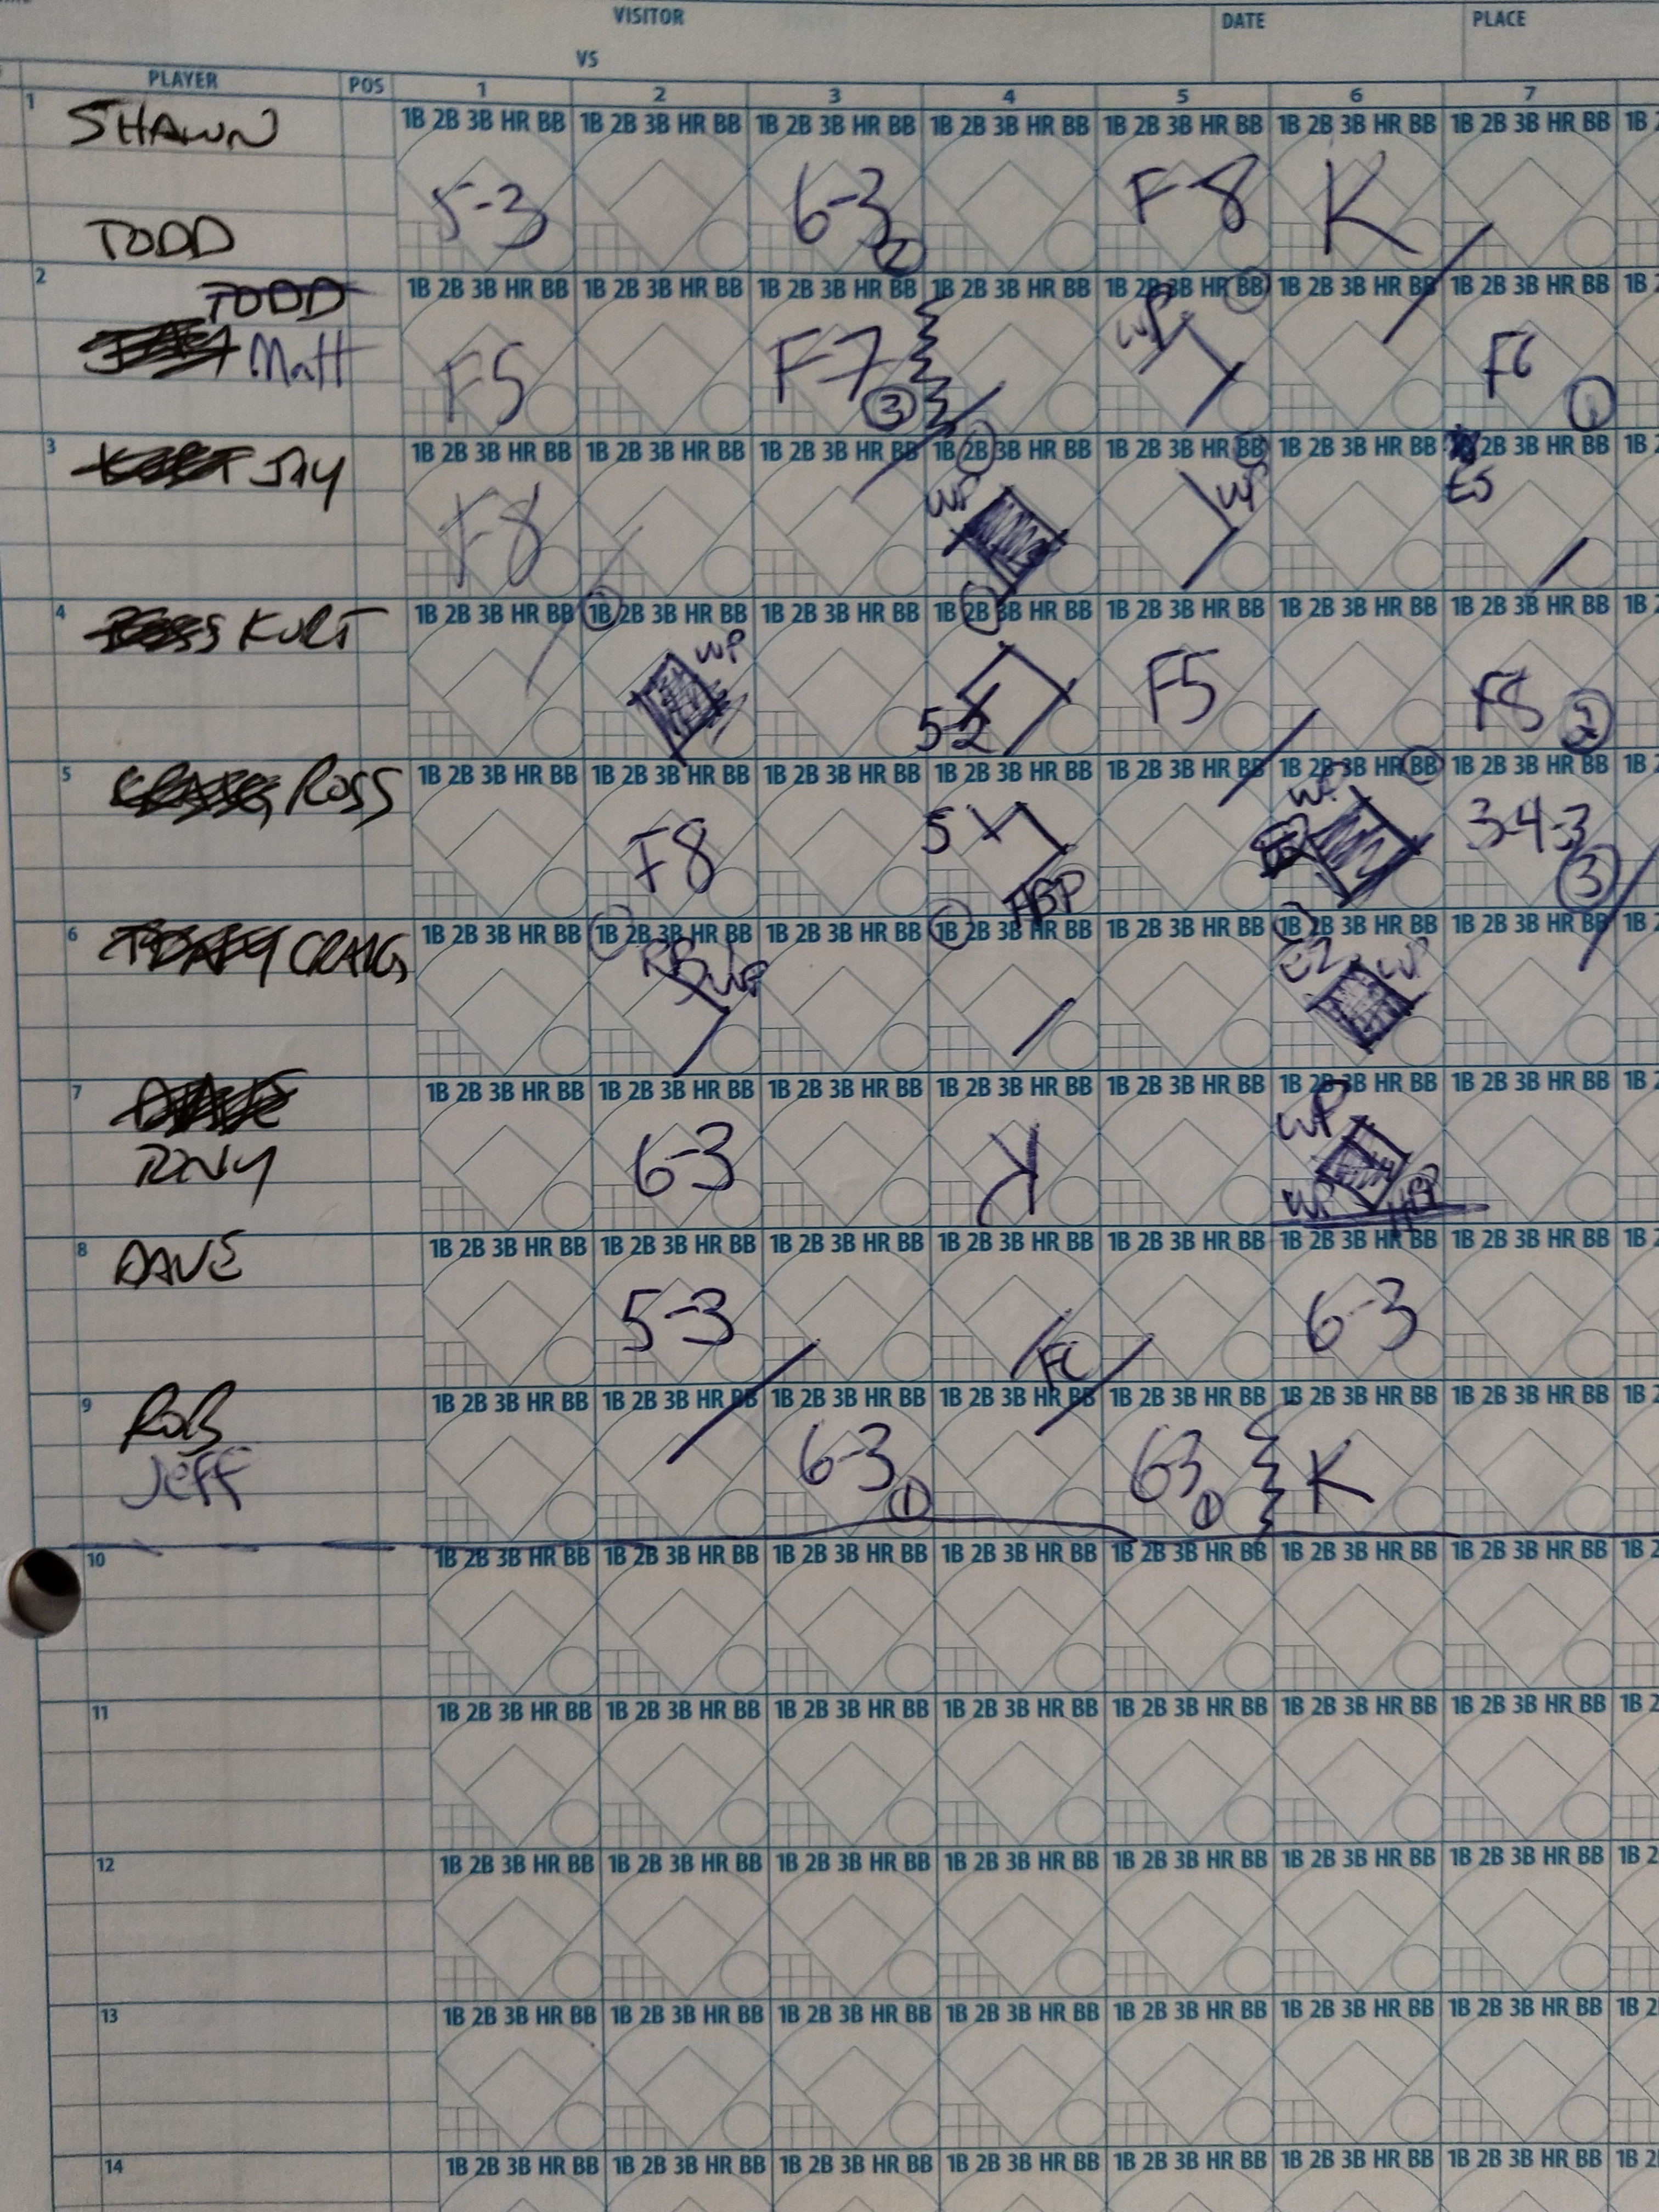 VISITOR
VS
DATE
PLACE
PLAYER POS 1 2 3 4 5 6 7
1 SHAWN
1B 2B 3B HR BB 1B 2B 3B HR BB 1B 2B 3B HR BB 1B 2B 3B HR BB 1B 2B 3B HR BB 1B 2B 3B HR BB 1B 2B 3B HR BB 1B
5-3 6-3 2 F-8 K
TODD
2 TODD
1B 2B 3B HR BB 1B 2B 3B HR BB 1B 2B 3B HR BB 1B 2B 3B HR BB 1B 2B 3B HR BB 1B 2B 3B HR BB 1B 2B 3B HR BB 1B 2
Matt F5 F7 3 WP F6 1
3 JAY
1B 2B 3B HR BB 1B 2B 3B HR BB 1B 2B 3B HR BB 1B 2B 3B HR BB 1B 2B 3B HR BB 1B 2B 3B HR BB 2B 3B HR BB 1B
F8 WP WP E5
4 KURT
1B 2B 3B HR BB 1B 2B 3B HR BB 1B 2B 3B HR BB 1B 2B 3B HR BB 1B 2B 3B HR BB 1B 2B 3B HR BB 1B 2B 3B HR BB 1B 2
WP 5-2 F5 F8 2
5 ROSS
1B 2B 3B HR BB 1B 2B 3B HR BB 1B 2B 3B HR BB 1B 2B 3B HR BB 1B 2B 3B HR BB 1B 2B 3B HR BB 1B 2B 3B HR BB 1B 2
F8 5 HBP WP 3-4-3 3
6 CRAIG
1B 2B 3B HR BB 1B 2B 3B HR BB 1B 2B 3B HR BB 1B 2B 3B HR BB 1B 2B 3B HR BB 1B 2B 3B HR BB 1B 2B 3B HR BB 1B 2
WP E2 WP
7
1B 2B 3B HR BB 1B 2B 3B HR BB 1B 2B 3B HR BB 1B 2B 3B HR BB 1B 2B 3B HR BB 1B 2B 3B HR BB 1B 2B 3B HR BB 1B 2
TONY 6-3 K WP WP HBP
8 DAVE
1B 2B 3B HR BB 1B 2B 3B HR BB 1B 2B 3B HR BB 1B 2B 3B HR BB 1B 2B 3B HR BB 1B 2B 3B HR BB 1B 2B 3B HR BB 1B 2
5-3 FC 6-3
9 ROB
1B 2B 3B HR BB 1B 2B 3B HR BB 1B 2B 3B HR BB 1B 2B 3B HR BB 1B 2B 3B HR BB 1B 2B 3B HR BB 1B 2B 3B HR BB 1B 2
Jeff 6-3 1 6-3 1 K
10 1B 2B 3B HR BB 1B 2B 3B HR BB 1B 2B 3B HR BB 1B 2B 3B HR BB 1B 2B 3B HR BB 1B 2B 3B HR BB 1B 2B 3B HR BB 1B 2
11 1B 2B 3B HR BB 1B 2B 3B HR BB 1B 2B 3B HR BB 1B 2B 3B HR BB 1B 2B 3B HR BB 1B 2B 3B HR BB 1B 2B 3B HR BB 1B 2
12 1B 2B 3B HR BB 1B 2B 3B HR BB 1B 2B 3B HR BB 1B 2B 3B HR BB 1B 2B 3B HR BB 1B 2B 3B HR BB 1B 2B 3B HR BB 1B 2
13 1B 2B 3B HR BB 1B 2B 3B HR BB 1B 2B 3B HR BB 1B 2B 3B HR BB 1B 2B 3B HR BB 1B 2B 3B HR BB 1B 2B 3B HR BB 1B 2
14 1B 2B 3B HR BB 1B 2B 3B HR BB 1B 2B 3B HR BB 1B 2B 3B HR BB 1B 2B 3B HR BB 1B 2B 3B HR BB 1B 2B 3B HR BB 1B 2